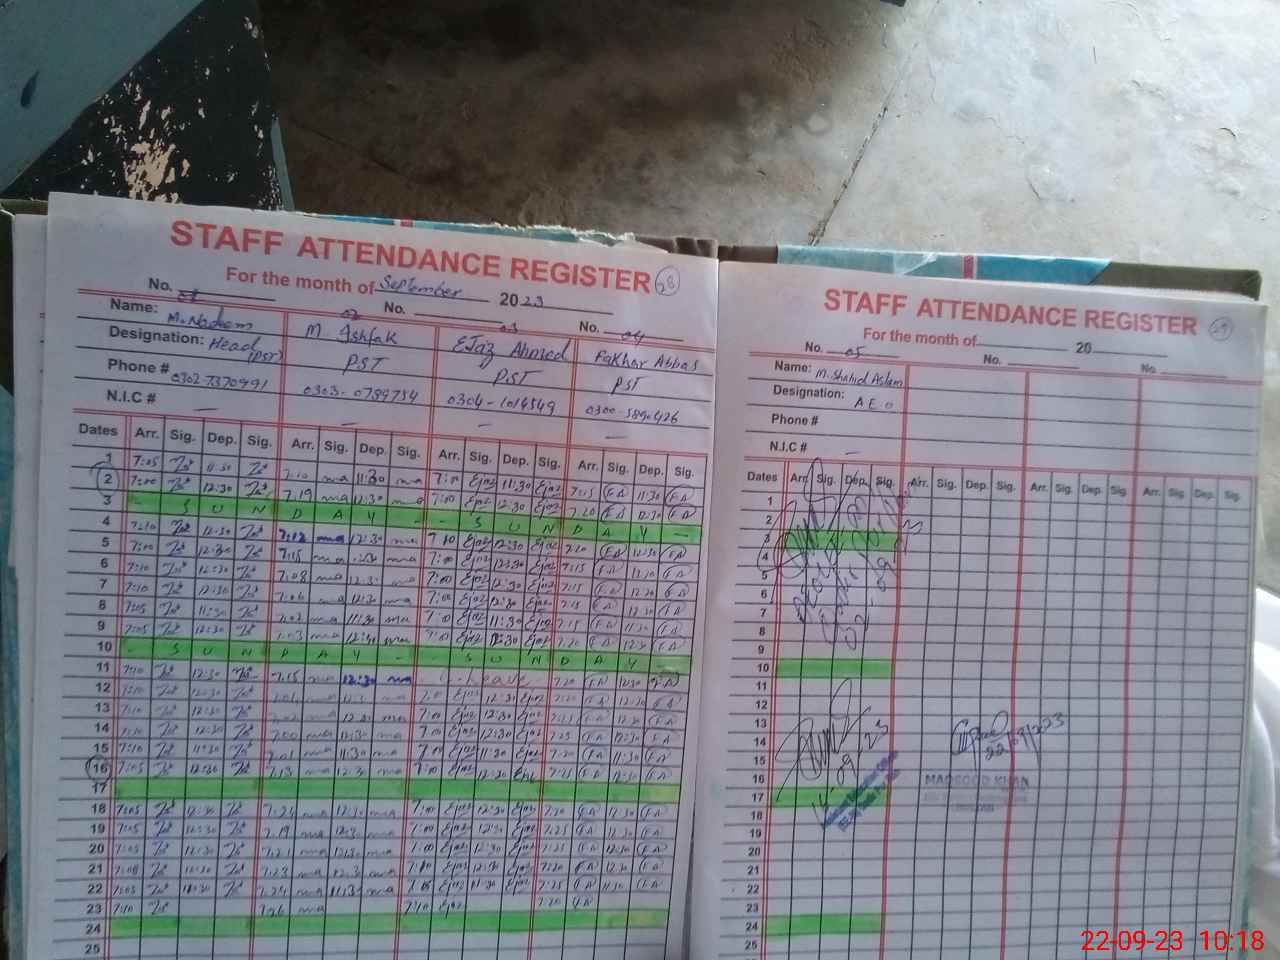 STAFF ATTENDANCE REGISTER 28
For the month of September 2023
No. 01 No. 02 No. 03 No. 04
Name: M. Nadeem M. Ashfak Ejaz Ahmed Fakhar Abbas
Designation: Head (PST) PST PST PST
Phone # 0302-7370991 0303-0789754 0304-1014549
N.I.C #
Dates Arr. Sig. Dep. Sig. Arr. Sig. Dep. Sig. Arr. Sig. Dep. Sig. Arr. Sig. Dep. Sig.
1 7:05 11:30 7:10 ma 11:30 ma 7:00 Ejaz 11:30 Ejaz 7:15 FA 11:30 FA
2 7:00 12:30 7:19 ma 12:30 ma 7:00 Ejaz 12:30 Ejaz 7:20 FA 12:30 FA
3 - S U N D A Y - - S U N D A Y -
4 7:10 12:30 7:12 ma 12:30 ma 7:10 Ejaz 12:30 Ejaz 7:20 FA 12:30 FA
5 7:00 12:30 7:15 ma 12:30 ma 7:00 Ejaz 12:30 Ejaz 7:15 FA 12:30 FA
6 7:10 12:30 7:08 ma 12:30 ma 7:00 Ejaz 12:30 Ejaz 7:15 FA 12:30 FA
7 7:10 12:30 7:06 ma 12:30 ma 7:00 Ejaz 12:30 Ejaz 7:15 FA 12:30 FA
8 7:05 11:30 7:02 ma 11:30 ma 7:00 Ejaz 11:30 Ejaz 7:15 FA 11:30 FA
9 7:05 12:30 7:03 ma 12:30 ma 7:00 Ejaz 12:30 Ejaz 7:20 FA 12:30 FA
10 - S U N D A Y - - S U N D A Y -
11 7:10 12:30 7:15 ma 12:30 ma - Leave - 7:20 FA 12:30 FA
12 7:10 12:30 ma 12:30 ma 7:00 Ejaz 12:30 Ejaz 7:20 FA 12:30 FA
13 7:10 12:30 7:02 ma 12:30 ma 7:00 Ejaz 12:30 Ejaz 7:25 FA 12:30 FA
14 7:10 12:30 7:00 ma 12:30 ma 7:00 Ejaz 12:30 Ejaz 7:25 FA 12:30 FA
15 7:10 11:30 7:01 ma 11:30 ma 7:00 Ejaz 11:30 Ejaz 7:20 FA 11:30 FA
16 7:05 12:30 7:13 ma 12:30 ma 7:00 Ejaz 12:30 Ejaz 7:25 FA 12:30 FA
17
18 7:05 12:30 7:24 ma 12:30 ma 7:00 Ejaz 12:30 Ejaz 7:20 FA 12:30 FA
19 7:05 12:30 7:19 ma 12:30 ma 7:00 Ejaz 12:30 Ejaz 7:25 FA 12:30 FA
20 7:05 12:30 7:21 ma 12:30 ma 7:00 Ejaz 12:30 Ejaz 7:25 FA 12:30 FA
21 7:08 12:30 7:23 ma 12:30 ma 7:10 Ejaz 12:30 Ejaz 7:20 FA 12:30 FA
22 7:05 11:30 7:24 ma 11:30 ma Ejaz 11:30 Ejaz 7:25 FA 11:30 FA
23 7:10 7:26 ma 7:10 Ejaz 7:20
24
25
STAFF ATTENDANCE REGISTER 29
For the month of 20
No. 05 No. No.
Name: M. Shahid Aslam
Designation: A E O
Phone #
N.I.C #
Dates Arr. Sig. Dep. Sig. Arr. Sig. Dep. Sig. Arr. Sig. Dep. Sig. Arr. Sig. Dep. Sig.
1
2
3
4
5
6
7
8
9
10
11
12
13
14
15
16
17
18
19
20
21
22
23
24
25
14-09-23
22/09/2023
MAQSOOD KHAN
22-09-23 10:18